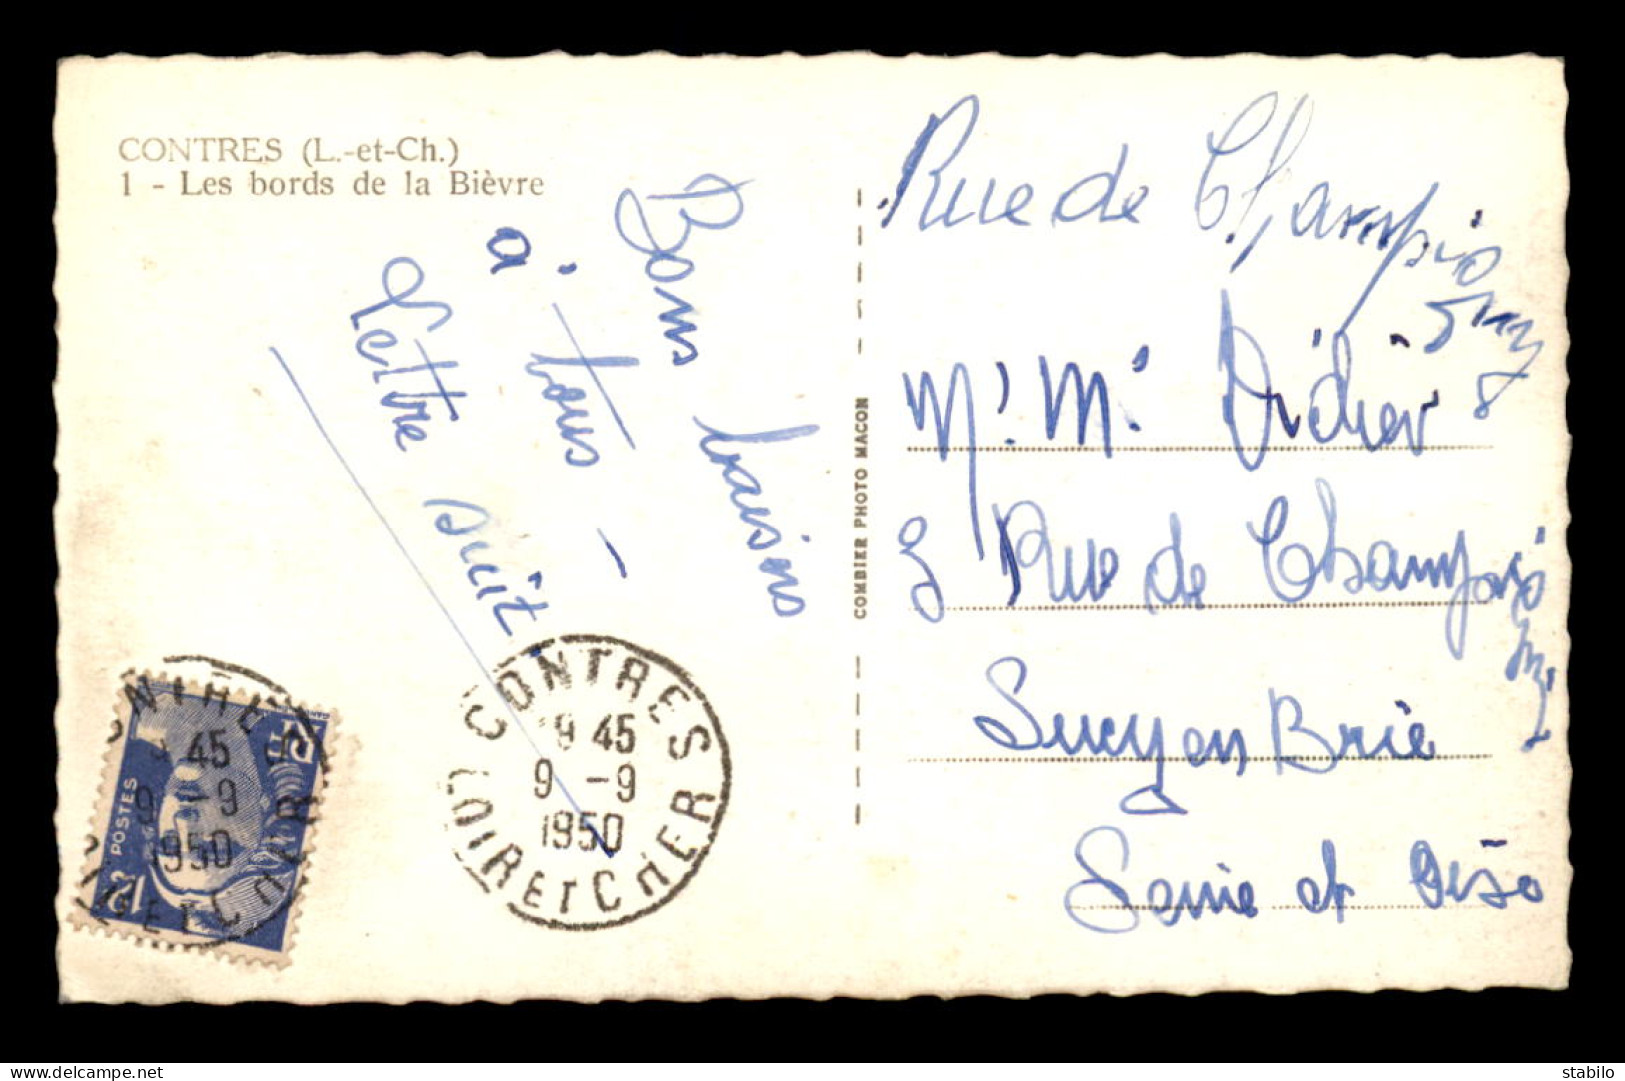 CONTRES (L.-et-Ch.)
1 - Les bords de la Bièvre
Bons baisers
à tous -
Lettre suit.
COMBIER PHOTO MACON
Rue de Champigny
Mr. Me. Didier
Rue de Champigny
Sucy en Brie
Seine et Oise
CONTRES
9 45
9 -9
1950
LOIR ET CHER
POSTES
45
9 -9
1950
delcampe.net
stabilo